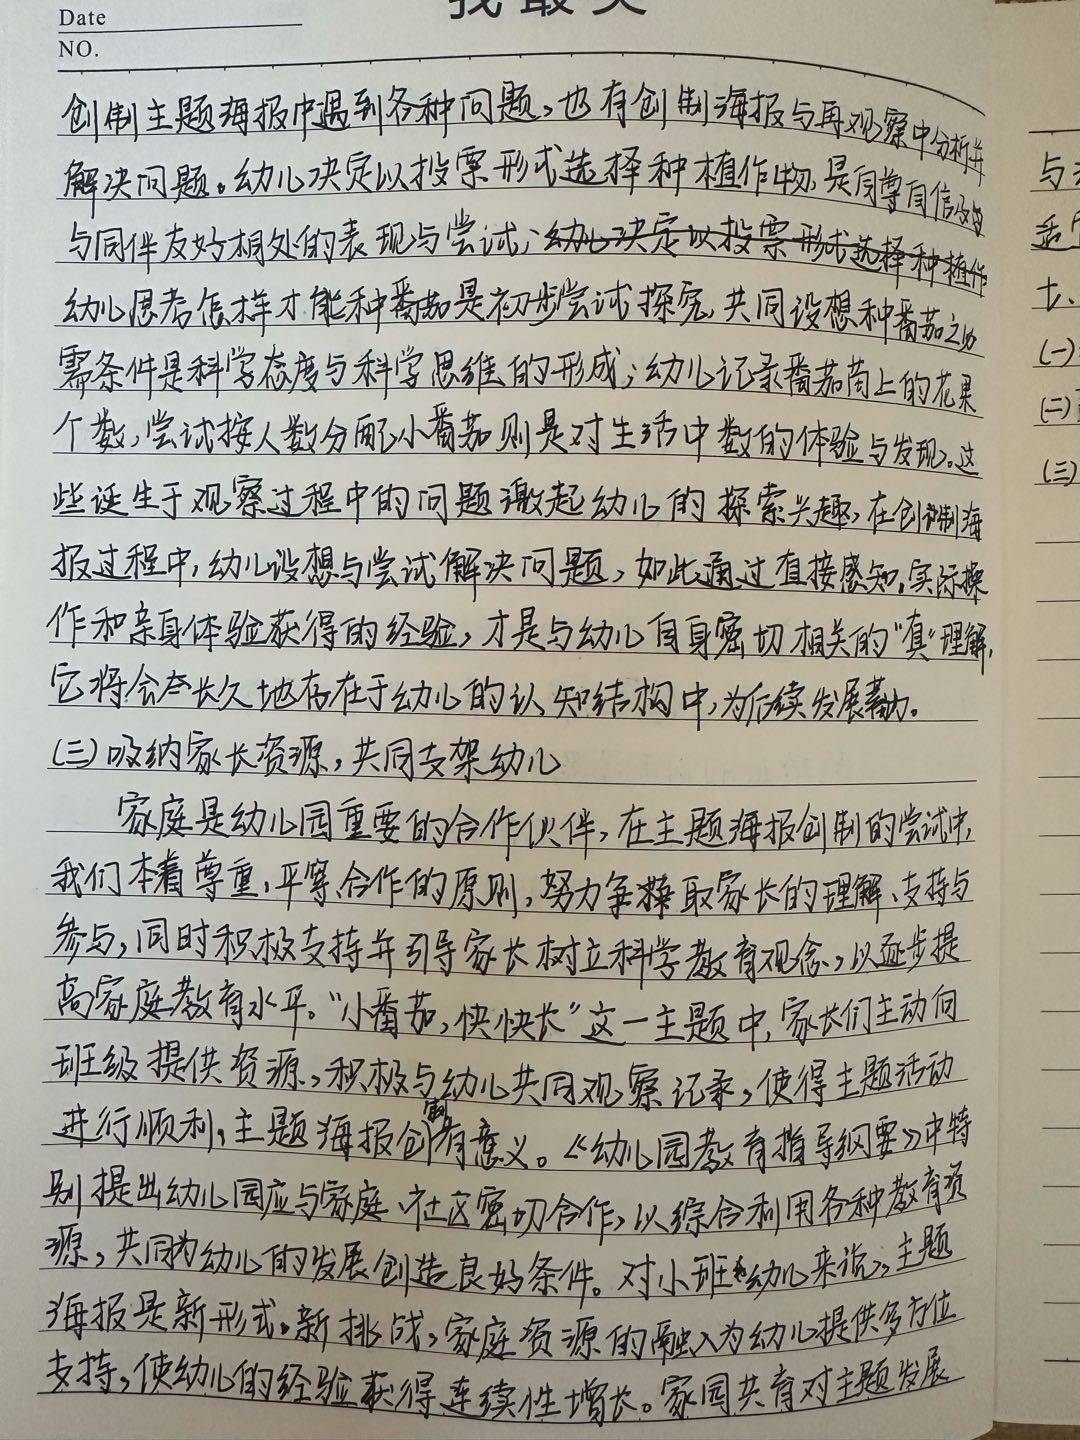 Date
NO.
创制主题海报中遇到各种问题,也有创制海报与再观察中分析并
解决问题。幼儿决定以投票形式选择种植作物,是自尊自信以及
与同伴友好相处的表现与尝试;幼儿决定以投票形式选择种植作
幼儿思考怎样才能种番茄是初步尝试探究,共同设想种番茄之必
需条件是科学态度与科学思维的形成;幼儿记录番茄苗上的花果
个数,尝试按人数分配小番茄则是对生活中数的体验与发现。这
些诞生于观察过程中的问题激起幼儿的探索兴趣,在创制海
报过程中,幼儿设想与尝试解决问题,如此通过直接感知,实际操
作和亲身体验获得的经验,才是与幼儿自身密切相关的“真”理解,
它将会长久地存在于幼儿的认知结构中,为后续发展蓄力。
(三)吸纳家长资源,共同支架幼儿
家庭是幼儿园重要的合作伙伴,在主题海报创制的尝试中,
我们本着尊重,平等,合作的原则,努力争取家长的理解、支持与
参与,同时积极支持并引导家长树立科学教育观念,以逐步提
高家庭教育水平。“小番茄,快快长”这一主题中,家长们主动向
班级提供资源,积极与幼儿共同观察记录,使得主题活动
进行顺利,主题海报创制有意义。《幼儿园教育指导纲要》中特
别提出幼儿园应与家庭、社区密切合作,以综合利用各种教育资
源,共同为幼儿的发展创造良好条件。对小班幼儿来说,主题
海报是新形式。新挑战,家庭资源的融入为幼儿提供多方位
支持,使幼儿的经验获得连续性增长。家园共育对主题发展
与
适
七、
(一)
(二)
(三)